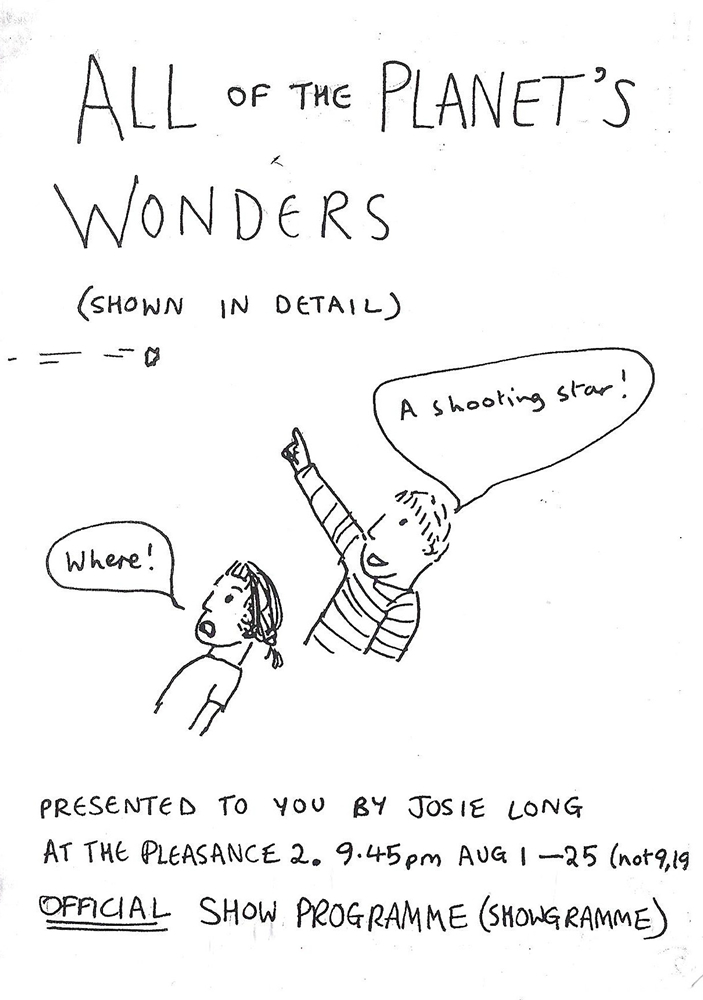 ALL OF THE PLANET'S
WONDERS
(SHOWN IN DETAIL)
A shooting star!
Where!
PRESENTED TO YOU BY JOSIE LONG
AT THE PLEASANCE 2. 9.45pm AUG 1 — 25 (not 9,19
OFFICIAL SHOW PROGRAMME (SHOWGRAMME)